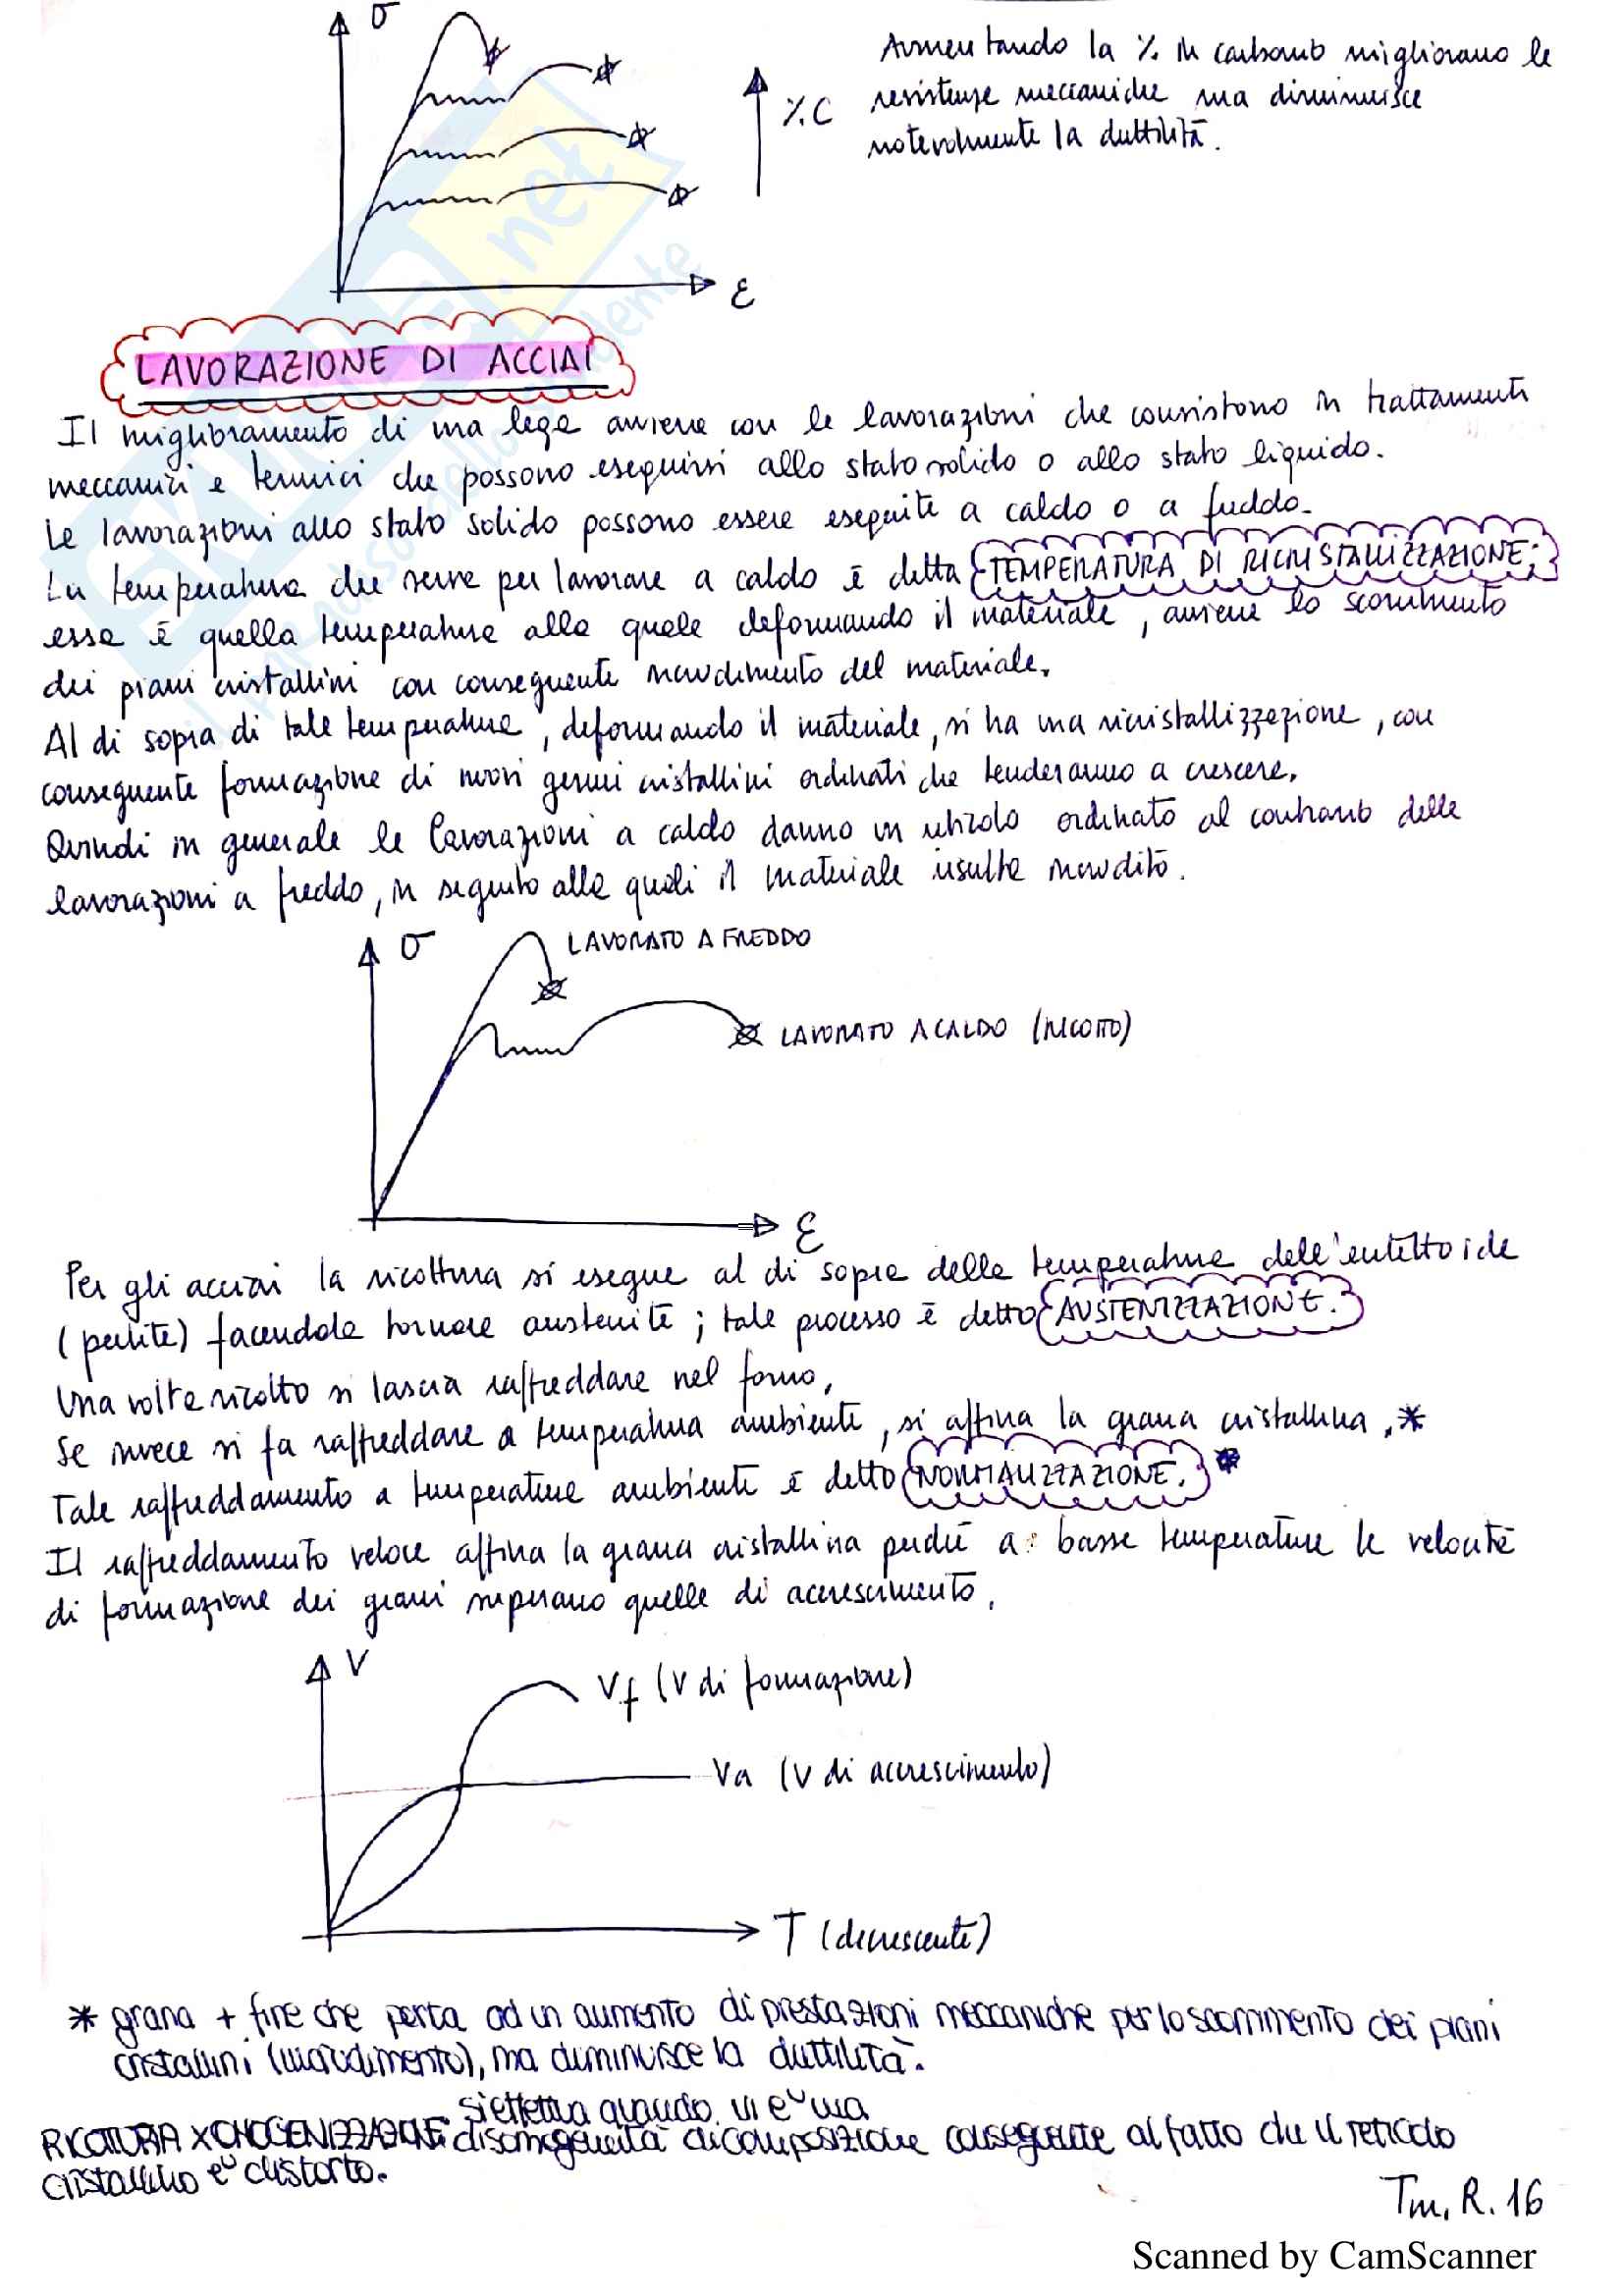 σ
Aumentando la % in carbonio migliorano le
%C resistenze meccaniche ma diminuisce
notevolmente la duttilità.
ε
LAVORAZIONE DI ACCIAI
Il miglioramento di una lega avviene con le lavorazioni che consistono in trattamenti
meccanici e termici che possono eseguirsi allo stato solido o allo stato liquido.
Le lavorazioni allo stato solido possono essere eseguite a caldo o a freddo.
La temperatura che serve per lavorare a caldo è detta TEMPERATURA DI RICRISTALLIZZAZIONE;
essa è quella temperatura alla quale deformando il materiale, avviene lo scorrimento
dei piani cristallini con conseguente incrudimento del materiale.
Al di sopra di tale temperatura, deformando il materiale, si ha una ricristallizzazione, con
conseguente formazione di nuovi germi cristallini ordinati che tenderanno a crescere.
Quindi in generale le lavorazioni a caldo danno un reticolo ordinato al contrario delle
lavorazioni a freddo, in seguito alle quali il materiale risulta incrudito.
σ LAVORATO A FREDDO
LAVORATO A CALDO (RICOTTO)
ε
Per gli acciai la ricottura si esegue al di sopra della temperatura dell'eutettoide
(perlite) facendola tornare austenite; tale processo è detto AUSTENIZZAZIONE.
Una volta ricotto si lascia raffreddare nel forno.
Se invece si fa raffreddare a temperatura ambiente, si affina la grana cristallina.*
Tale raffreddamento a temperatura ambiente è detto NORMALIZZAZIONE. *
Il raffreddamento veloce affina la grana cristallina perché a basse temperature le velocità
di formazione dei grani superano quelle di accrescimento.
V
Vf (V di formazione)
Va (V di accrescimento)
T (decrescente)
* grana + fine che porta ad un aumento di prestazioni meccaniche per lo scorrimento dei piani
cristallini (incrudimento), ma diminuisce la duttilità.
si effettua quando vi è una
RICOTTURA X OMOGENIZZAZIONE: disomogeneità di composizione conseguente al fatto che il reticolo
cristallino è distorto.
Tm. R. 16
Scanned by CamScanner
SKUOLA.net
il paradiso dello studente